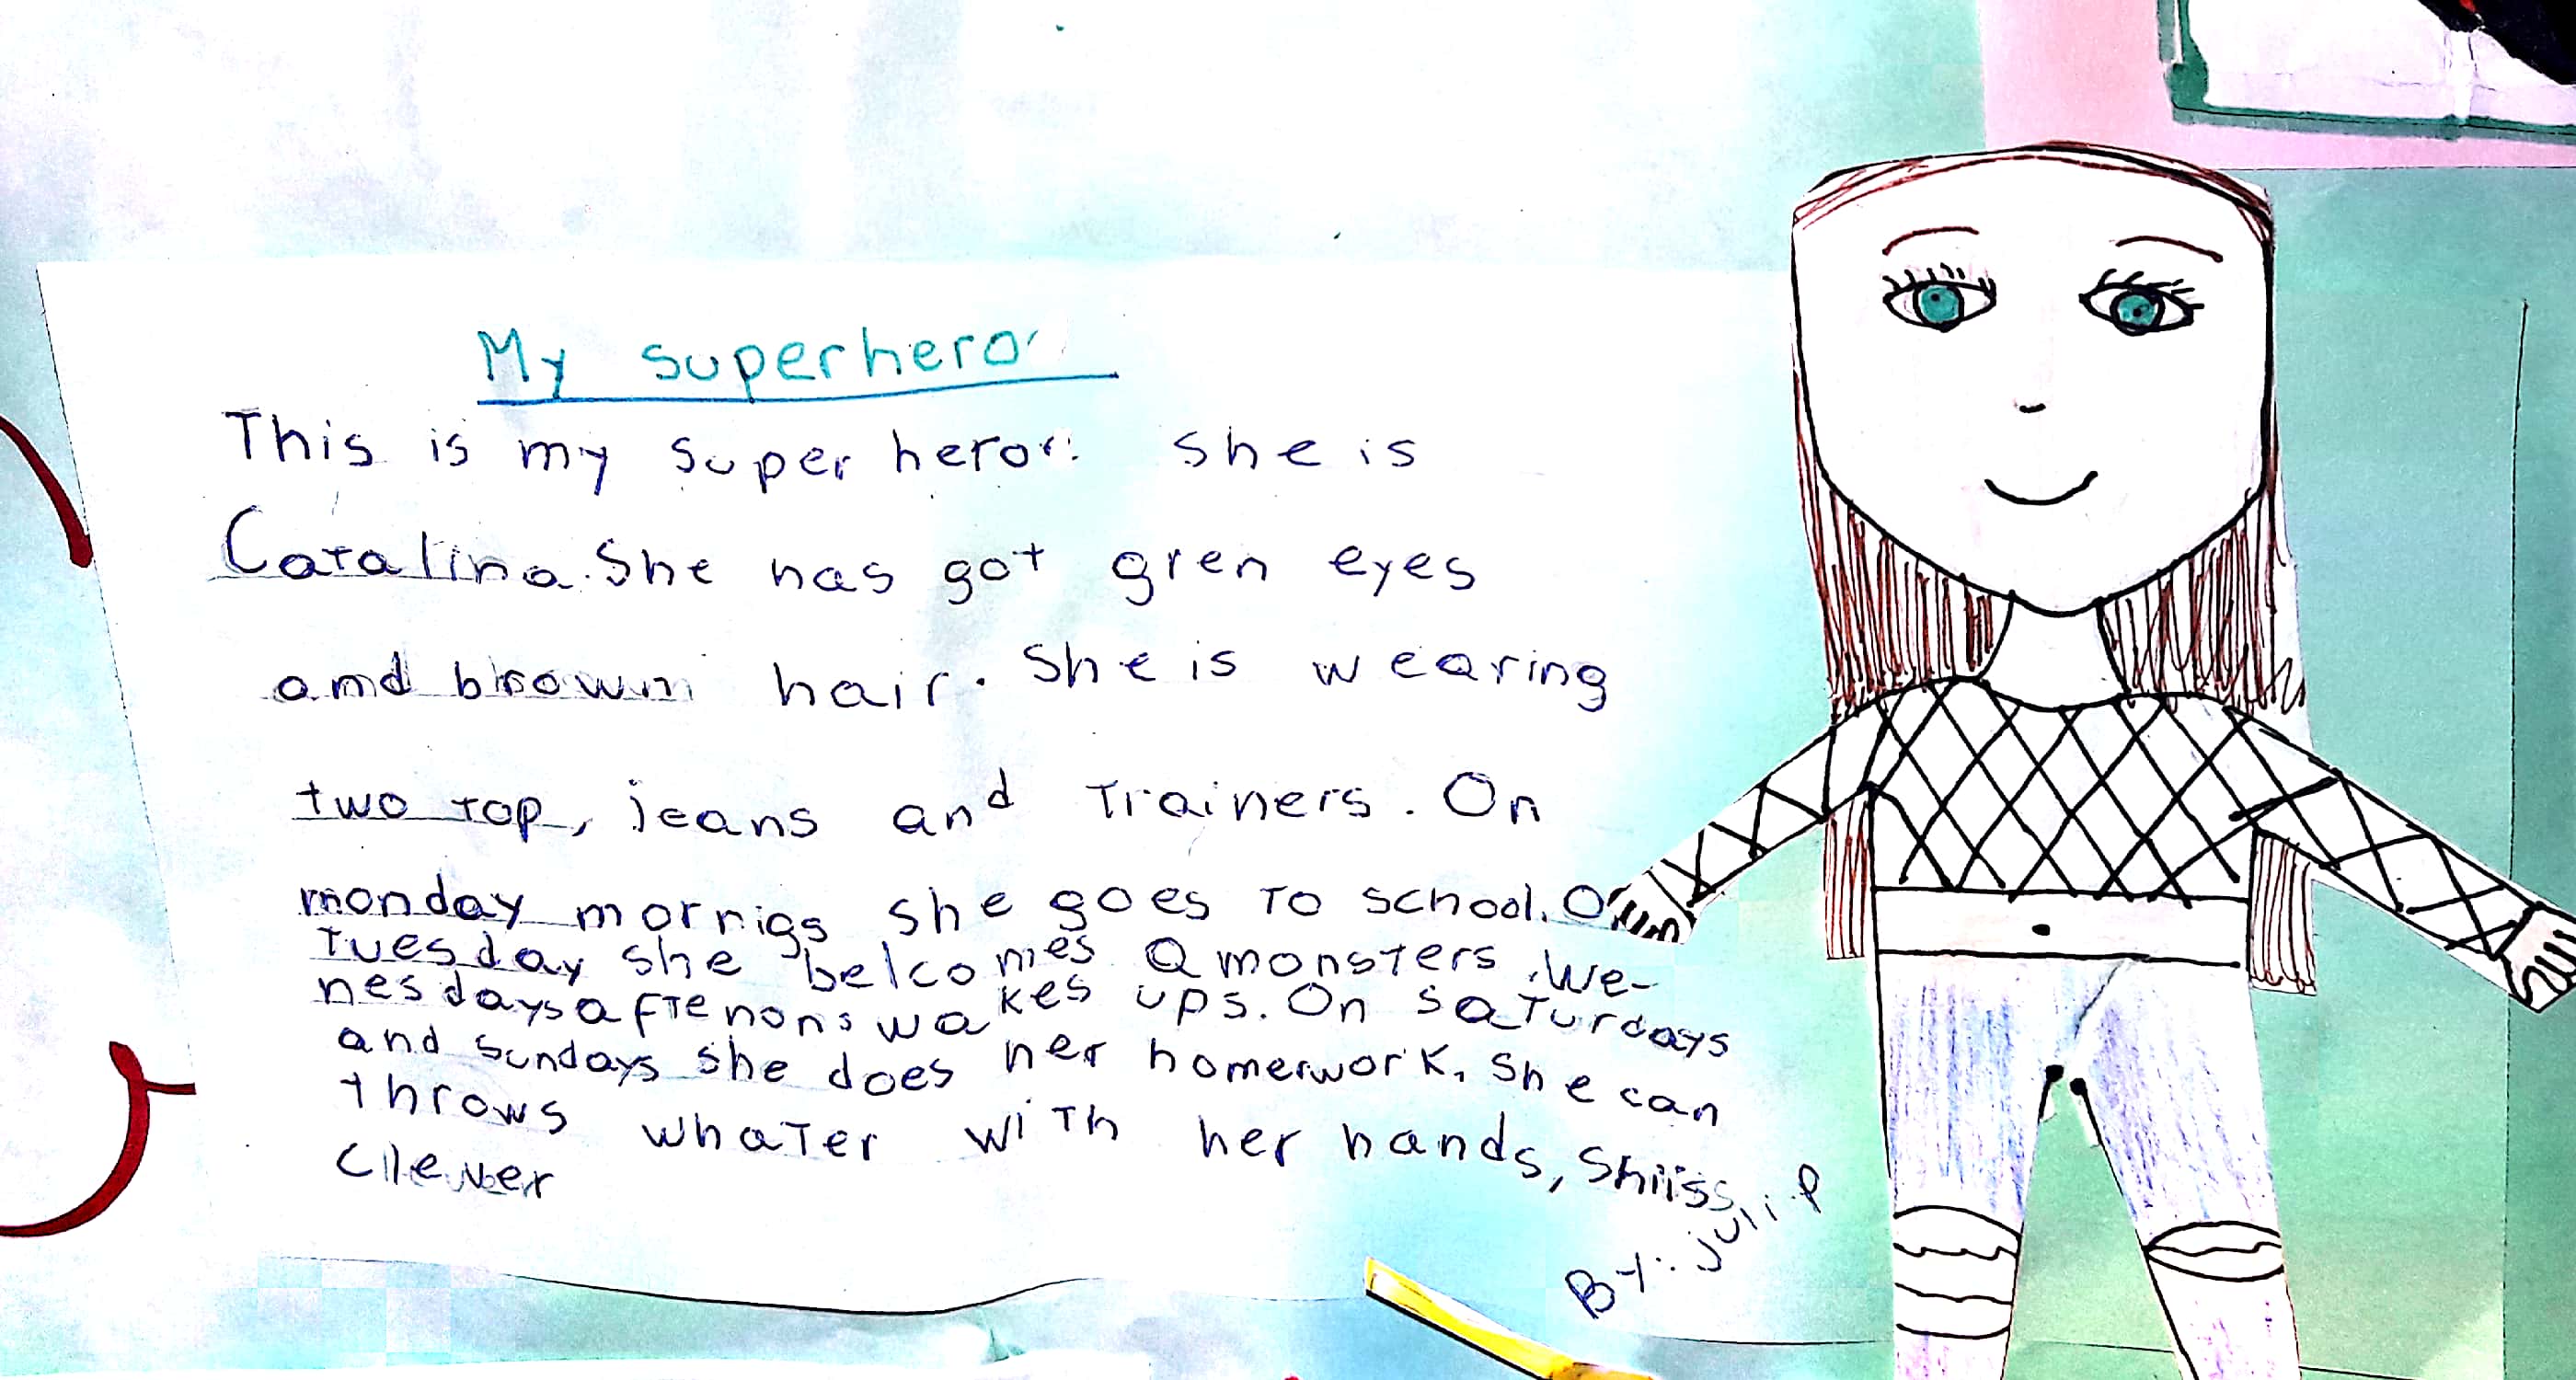 My superhero
This is my super hero. she is
Catalina. She has got gren eyes
amd brown hair. She is wearing
two top, jeans and Trainers. On
monday mornigs she goes To school. O
Tuesday she belcomes a monsters. We-
nesdays aftenons wakes ups. On saTurdays
and sundays she does her homerwork. She can
throws whaTer wiTh her hands, Shiiss
Cllever
BY: juli P